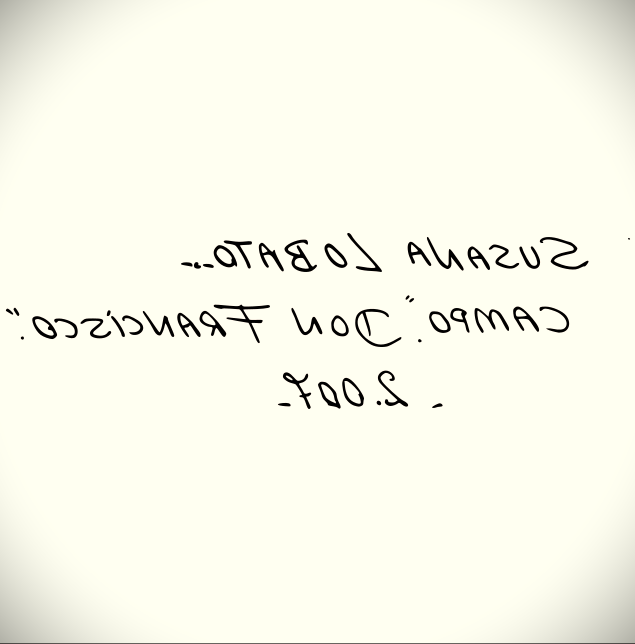 SUSANA LOBATO...
CAMPO "DON FRANCISCO".
- 2.007-